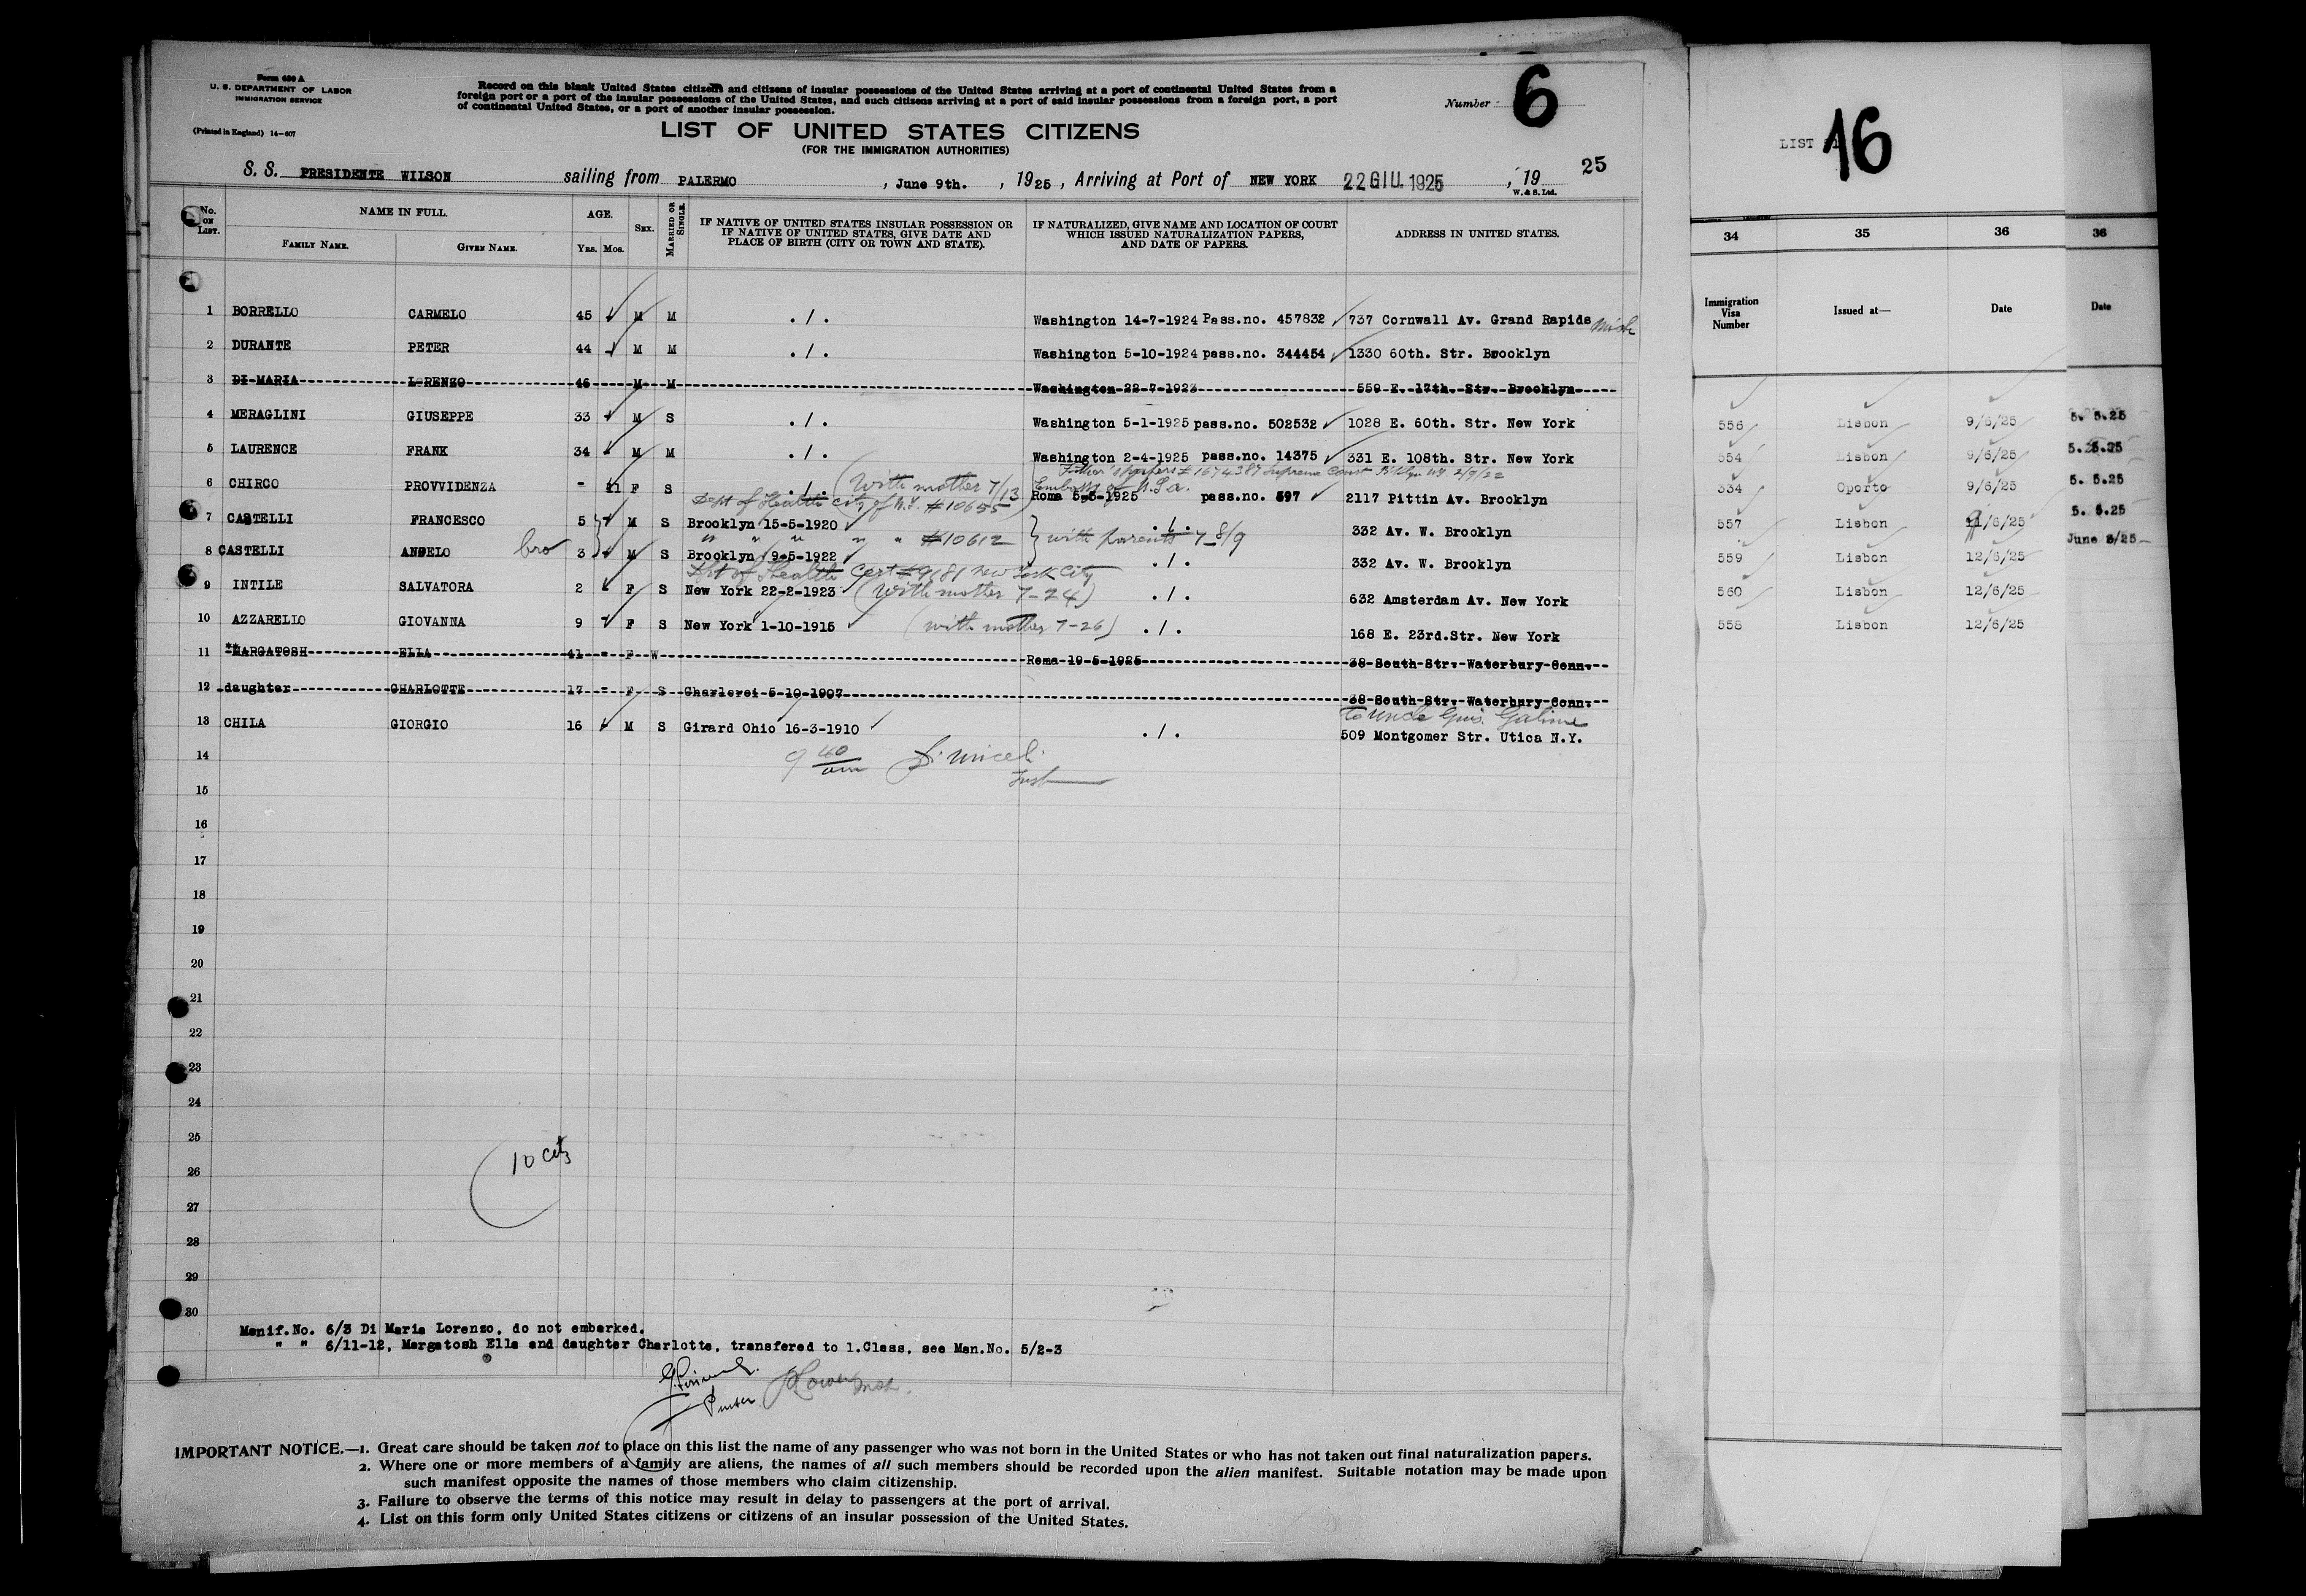 Form 630 A
U. S. DEPARTMENT OF LABOR
IMMIGRATION SERVICE
(Printed in England) 14-607
Record on this blank United States citizens and citizens of insular possessions of the United States arriving at a port of continental United States from a
foreign port or a port of the insular possessions of the United States, and such citizens arriving at a port of said insular possessions from a foreign port, a port
of continental United States, or a port of another insular possession.
Number 6
LIST OF UNITED STATES CITIZENS
(FOR THE IMMIGRATION AUTHORITIES)
S. S. PRESIDENTE WILSON sailing from PALERMO , June 9th. , 1925 , Arriving at Port of NEW YORK 22 GIU. 1925 , 19 25
W. & S. Ltd.
No. ON LIST. NAME IN FULL. FAMILY NAME. GIVEN NAME. AGE. Yrs. Mos. SEX. MARRIED OR SINGLE. IF NATIVE OF UNITED STATES INSULAR POSSESSION OR IF NATIVE OF UNITED STATES, GIVE DATE AND PLACE OF BIRTH (CITY OR TOWN AND STATE). IF NATURALIZED, GIVE NAME AND LOCATION OF COURT WHICH ISSUED NATURALIZATION PAPERS, AND DATE OF PAPERS. ADDRESS IN UNITED STATES.
1 BORRELLO CARMELO 45 - M M . / . Washington 14-7-1924 Pass.no. 457832 737 Cornwall Av. Grand Rapids Mich
2 DURANTE PETER 44 - M M . / . Washington 5-10-1924 pass.no. 344454 1330 60th. Str. Brooklyn
3 DI MARIA LORENZO 46 M M Washington 22-7-1923 559 E. 17th. Str. Brooklyn
4 MERAGLINI GIUSEPPE 33 - M S . / . Washington 5-1-1925 pass.no. 502532 1028 E. 60th. Str. New York
5 LAURENCE FRANK 34 - M M . / . Washington 2-4-1925 pass.no. 14375 331 E. 108th. Str. New York
Father's papers # 1674387 Supreme Court Bklyn NY 2/9/22
6 CHIRCO PROVVIDENZA - 11 F S . / . (With mother 7/13) Embassy of U.S.a. Roma 5-5-1925 pass.no. 597 2117 Pittin Av. Brooklyn
Dept of Health City of N.Y. #10655
7 CASTELLI FRANCESCO 5 - M S Brooklyn 15-5-1920 . / . 332 Av. W. Brooklyn
" " " " " #10612 } with parents 7-8/9
8 CASTELLI ANGELO bro 3 - M S Brooklyn 9-5-1922 . / . 332 Av. W. Brooklyn
Dept of Health Cert #9681 New York City
9 INTILE SALVATORA 2 - F S New York 22-2-1923 (With mother 7-24) . / . 632 Amsterdam Av. New York
10 AZZARELLO GIOVANNA 9 - F S New York 1-10-1915 (with mother 7-26) . / . 168 E. 23rd.Str. New York
11 MARGATOSH ELLA 41 - F W Roma 19-5-1925 38 South Str. Waterbury Conn.
12 daughter CHARLOTTE 17 - F S Charleroi 5-10-1907 38 South Str. Waterbury Conn.
to uncle Gius. Galime
13 CHILA GIORGIO 16 - M S Girard Ohio 16-3-1910 . / . 509 Montgomer Str. Utica N.Y.
14
9 40 am
Insp
15
16
17
18
19
20
21
22
23
24
25
10 cits
26
27
28
29
30
Manif.No. 6/3 Di Maria Lorenzo, do not embarked.
" " 6/11-12, Margatosh Ella and daughter Charlotte, transfered to 1.Class, see Man.No. 5/2-3
Purser
IMPORTANT NOTICE.—1. Great care should be taken not to place on this list the name of any passenger who was not born in the United States or who has not taken out final naturalization papers.
2. Where one or more members of a family are aliens, the names of all such members should be recorded upon the alien manifest. Suitable notation may be made upon
such manifest opposite the names of those members who claim citizenship.
3. Failure to observe the terms of this notice may result in delay to passengers at the port of arrival.
4. List on this form only United States citizens or citizens of an insular possession of the United States.
LIST 16
34 35 36
Immigration Visa Number Issued at— Date
556 Lisbon 9/6/25
554 Lisbon 9/6/25
534 Oporto 9/6/25
557 Lisbon 11/6/25
559 Lisbon 12/6/25
560 Lisbon 12/6/25
558 Lisbon 12/6/25
36
Date
5. 5.25
5. 5.25
5. 5.25
5. 5.25
June 3/25